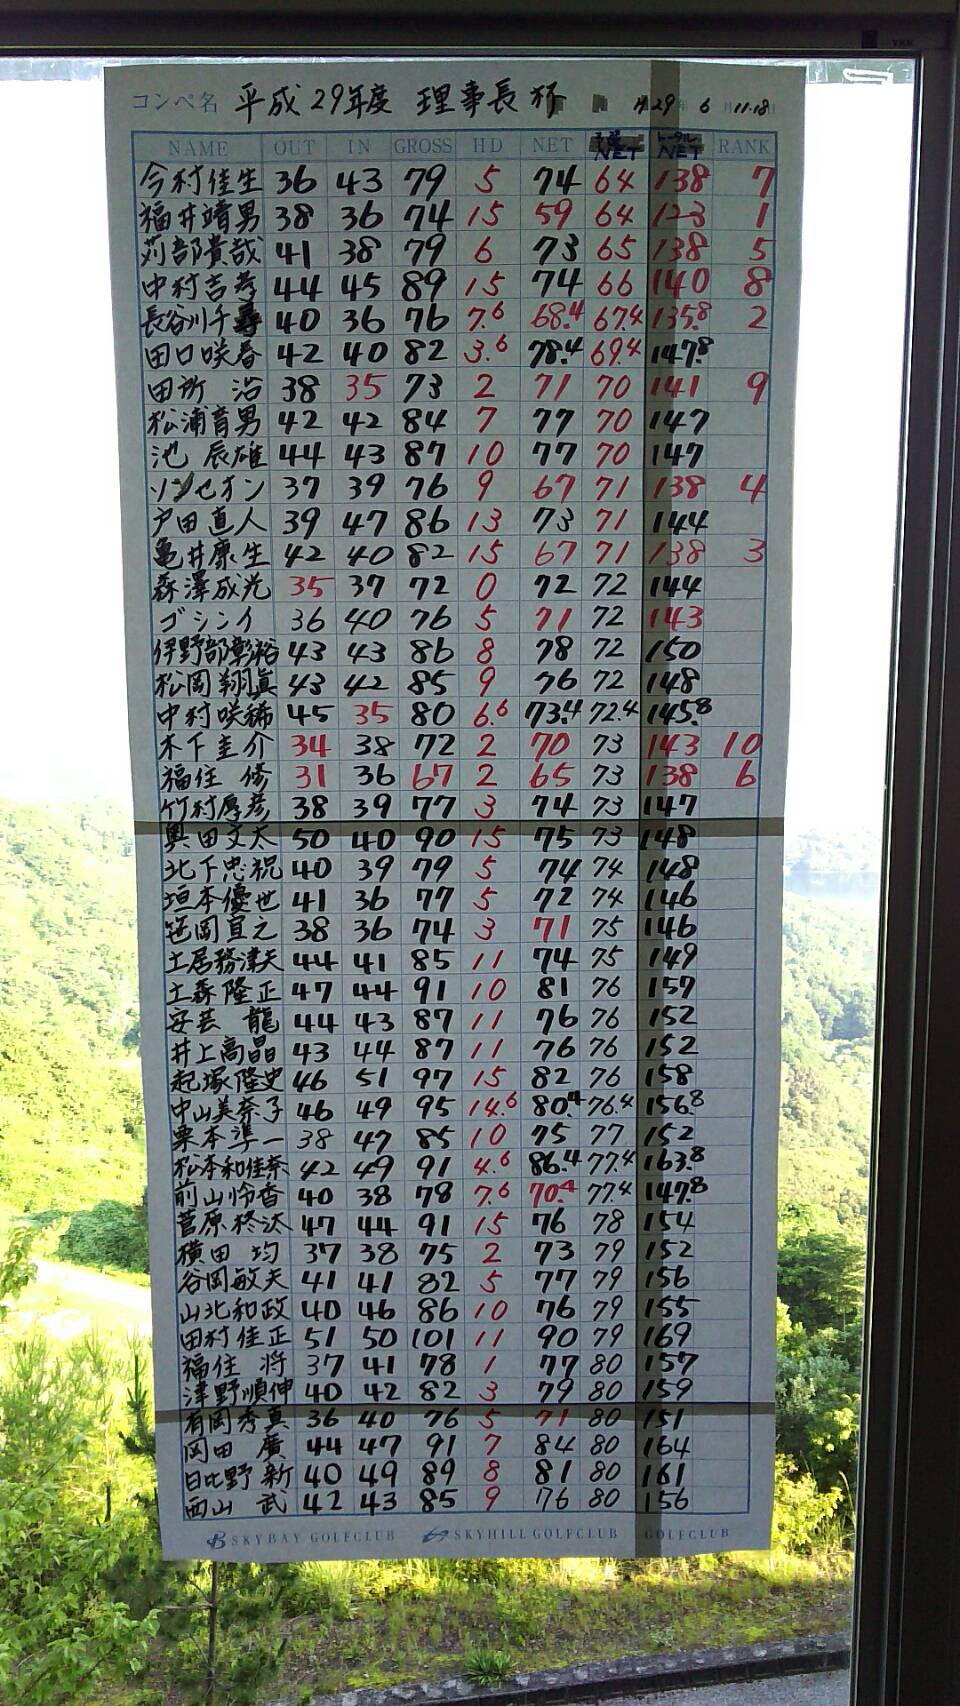 コンペ名 平成29年度 理事長杯 H29年 6月 11.18日
NAME OUT IN GROSS HD NET 予選NET トータルNET RANK
今村佳生 36 43 79 5 74 64 138 7
福井靖男 38 36 74 15 59 64 123 1
苅部貴哉 41 38 79 6 73 65 138 5
中村吉孝 44 45 89 15 74 66 140 8
長谷川千尋 40 36 76 7.6 68.4 67.4 135.8 2
田口咲春 42 40 82 3.6 78.4 69.4 147.8
田所 治 38 35 73 2 71 70 141 9
松浦育男 42 42 84 7 77 70 147
池 辰雄 44 43 87 10 77 70 147
ソンセオン 37 39 76 9 67 71 138 4
戸田直人 39 47 86 13 73 71 144
亀井康生 42 40 82 15 67 71 138 3
森澤成光 35 37 72 0 72 72 144
ゴシンイ 36 40 76 5 71 72 143
伊野部彰裕 43 43 86 8 78 72 150
松岡翔眞 43 42 85 9 76 72 148
中村咲稀 45 35 80 6.6 73.4 72.4 145.8
木下圭介 34 38 72 2 70 73 143 10
福住 修 31 36 67 2 65 73 138 6
竹村厚彦 38 39 77 3 74 73 147
奥田文太 50 40 90 15 75 73 148
北下忠祝 40 39 79 5 74 74 148
垣本優世 41 36 77 5 72 74 146
笹岡宜之 38 36 74 3 71 75 146
土居務津夫 44 41 85 11 74 75 149
土森隆正 47 44 91 10 81 76 157
安芸 龍 44 43 87 11 76 76 152
井上高晶 43 44 87 11 76 76 152
起塚隆史 46 51 97 15 82 76 158
中山美奈子 46 49 95 14.6 80.4 76.4 156.8
栗本準一 38 47 85 10 75 77 152
松本和佳奈 42 49 91 4.6 86.4 77.4 163.8
前山怜香 40 38 78 7.6 70.4 77.4 147.8
菅原柊汰 47 44 91 15 76 78 154
横田 均 37 38 75 2 73 79 152
谷岡敏夫 41 41 82 5 77 79 156
山北和政 40 46 86 10 76 79 155
田村佳正 51 50 101 11 90 79 169
福住 将 37 41 78 1 77 80 157
津野順伸 40 42 82 3 79 80 159
有岡秀真 36 40 76 5 71 80 151
岡田 廣 44 47 91 7 84 80 164
日比野 新 40 49 89 8 81 80 161
西山 武 42 43 85 9 76 80 156
SKYBAY GOLFCLUB SKYHILL GOLFCLUB GOLFCLUB